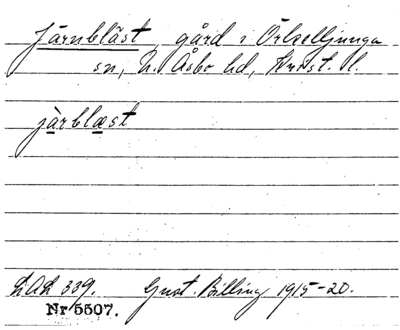 Järnbläst, gård i Örkelljunga
sn, N. Åsbo hd, Krist. l.
jàrblæst
LAL 339. Gust. Billing 1915-20.
Nr 5507.